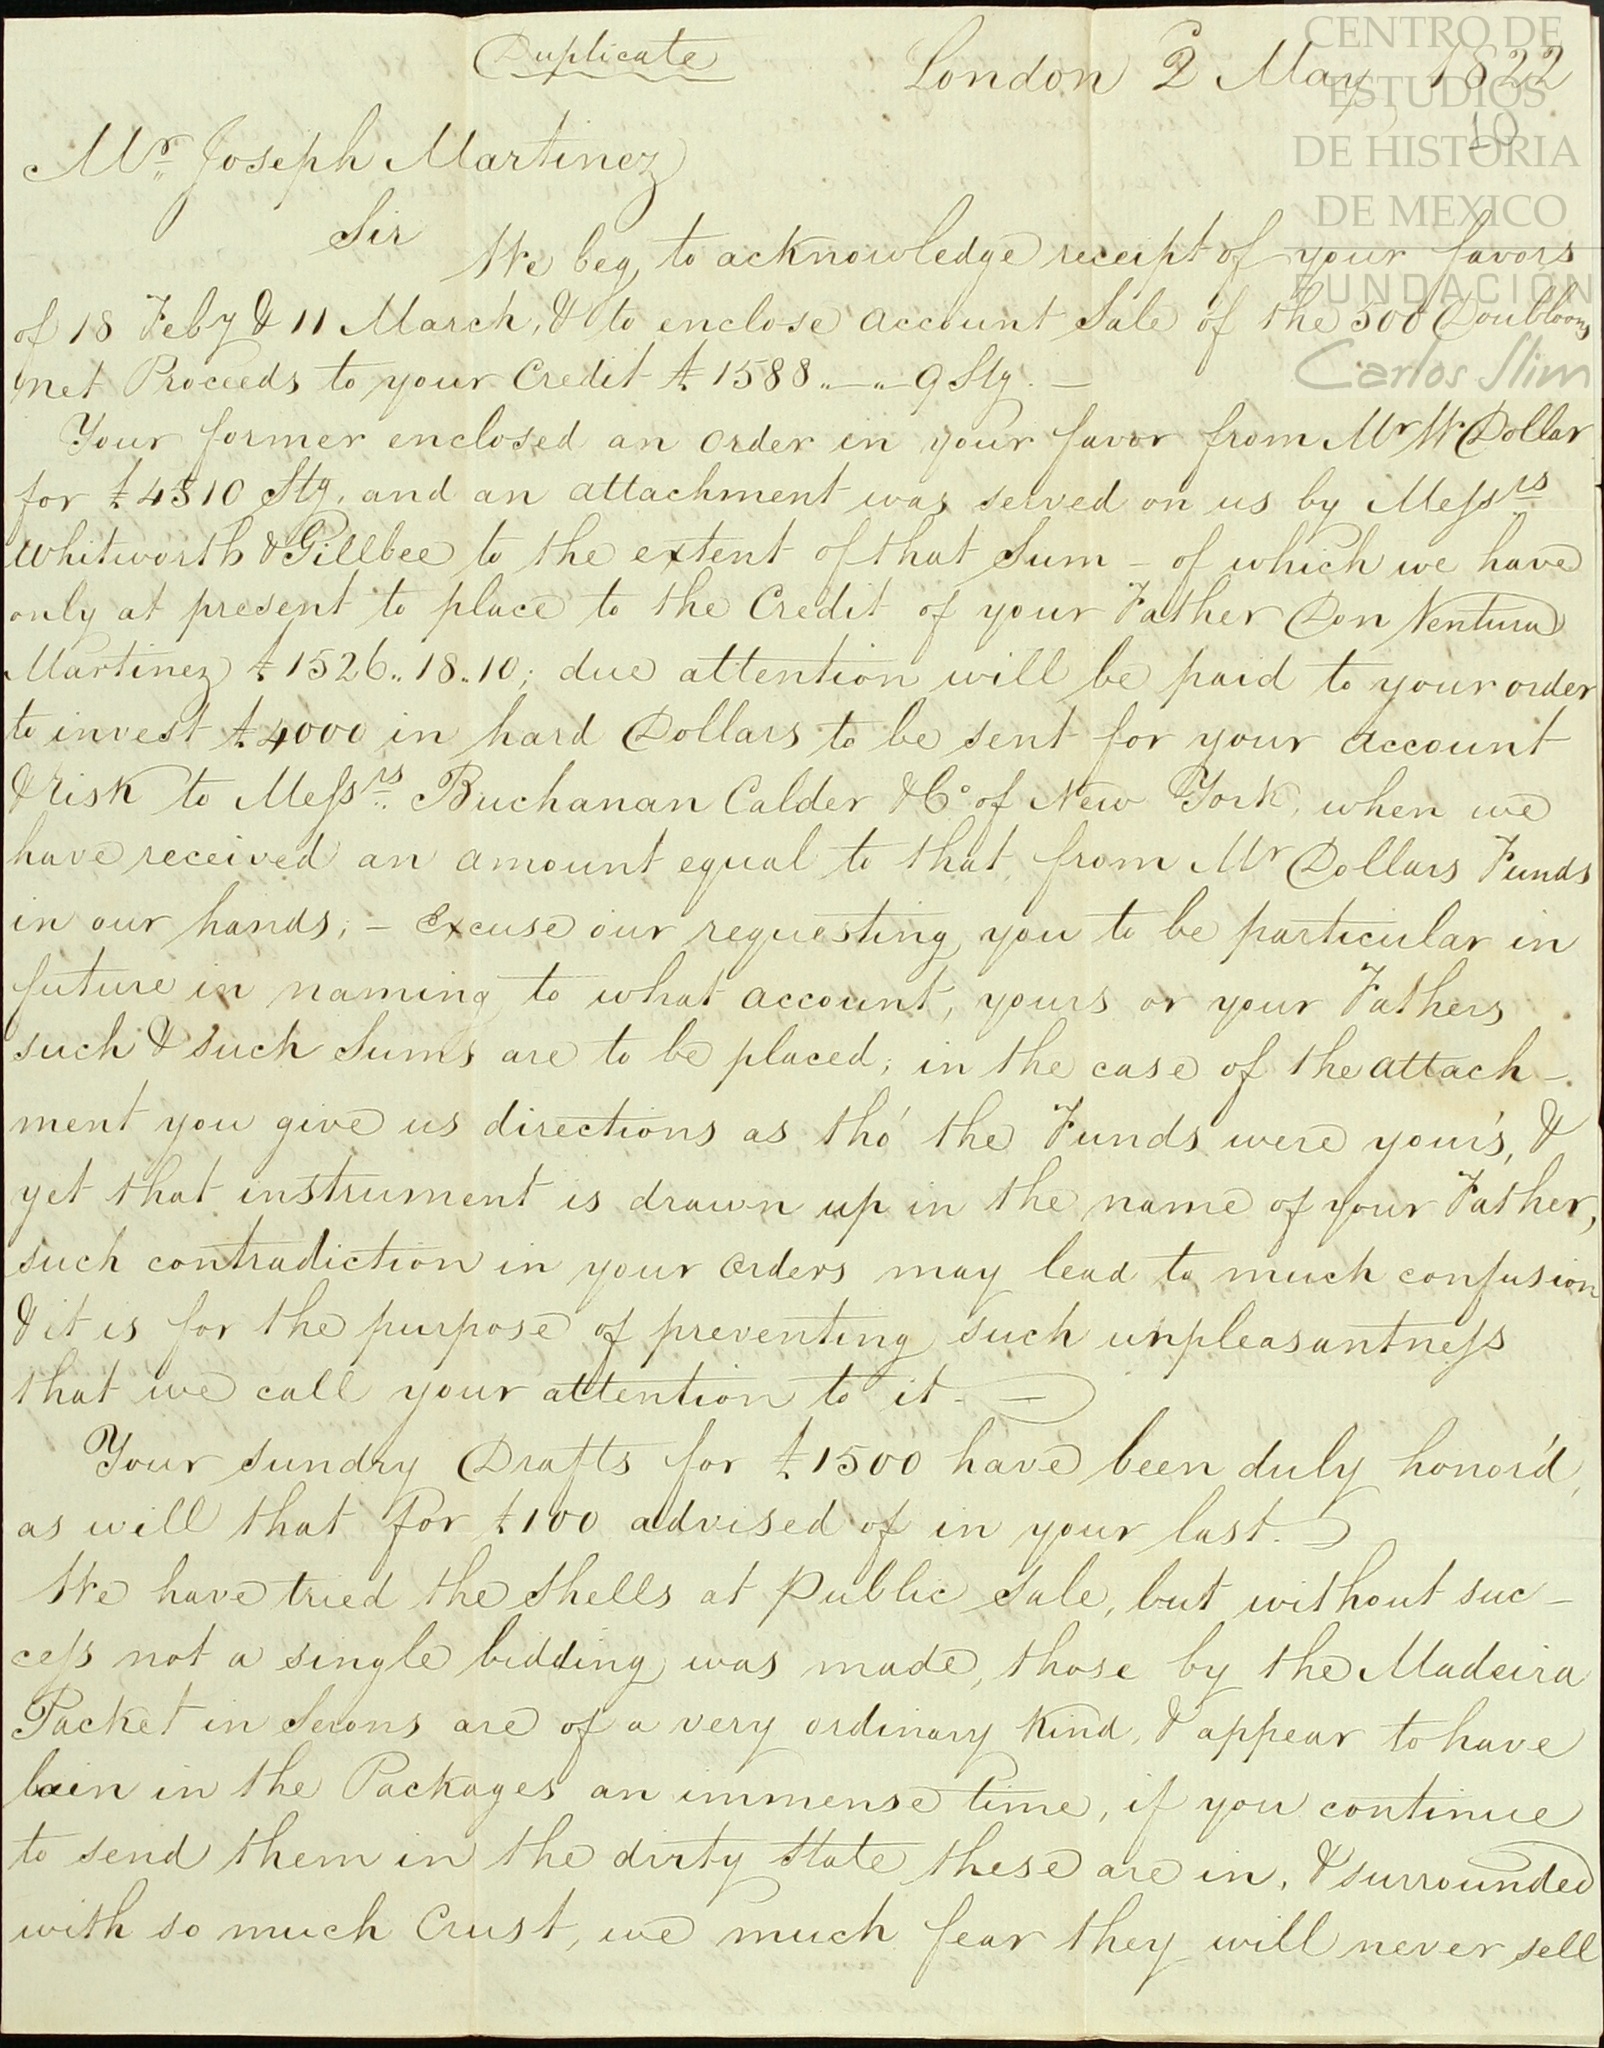 Duplicate
London 2 May 1822
10
Mr. Joseph Martinez
Sir
We beg to acknowledge receipt of your favors
of 18 Feby & 11 March, & to enclose account Sale of the 500 Doubloons
net Proceeds to your Credit £1588..—..9 Stg. —
Your former enclosed an order in your favor from Mr W Dollar
for £4510 Stg, and an attachment was served on us by Messrs.
Whitworth & Gillbee to the extent of that Sum - of which we have
only at present to place to the Credit of your Father Don Ventura
Martinez £1526..18..10; due attention will be paid to your order
to invest £4000 in hard Dollars to be sent for your account
& risk to Messrs. Buchanan Calder & Co of New York, when we
have received an amount equal to that, from Mr Dollars Funds
in our hands; - excuse our requesting you to be particular in
future in naming to what account, yours or your Fathers
such & such Sums are to be placed; in the case of the attach-
ment you give us directions as tho' the Funds were your's, &
yet that instrument is drawn up in the name of your Father,
such contradiction in your orders may lead to much confusion
& it is for the purpose of preventing such unpleasantness
that we call your attention to it. —
Your sundry Drafts for £1500 have been duly honor'd,
as will that for £100 advised of in your last. —
We have tried the Shells at Public Sale, but without suc-
cess not a single bidding was made, those by the Madeira
Packet in Serons are of a very ordinary kind, & appear to have
lain in the Packages an immense time, if you continue
to send them in the dirty State these are in, & surrounded
with so much Crust, we much fear they will never sell
CENTRO DE
ESTUDIOS
DE HISTORIA
DE MEXICO
FUNDACIÓN
Carlos Slim